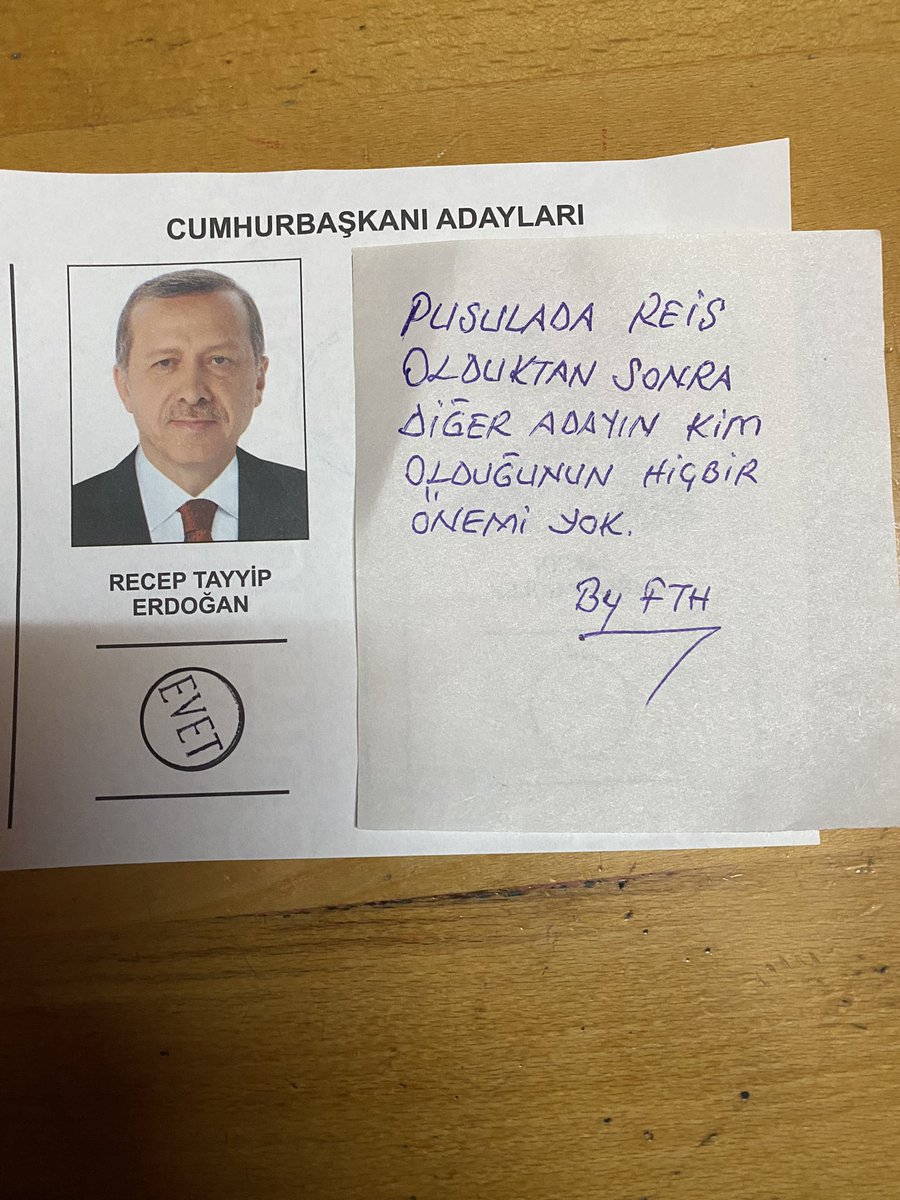 CUMHURBAŞKANI ADAYLARI
RECEP TAYYİP
ERDOĞAN
EVET
PUSULADA REİS
OLDUKTAN SONRA
DİĞER ADAYIN KİM
OLDUĞUNUN HİÇBİR
ÖNEMİ YOK.
By FTH